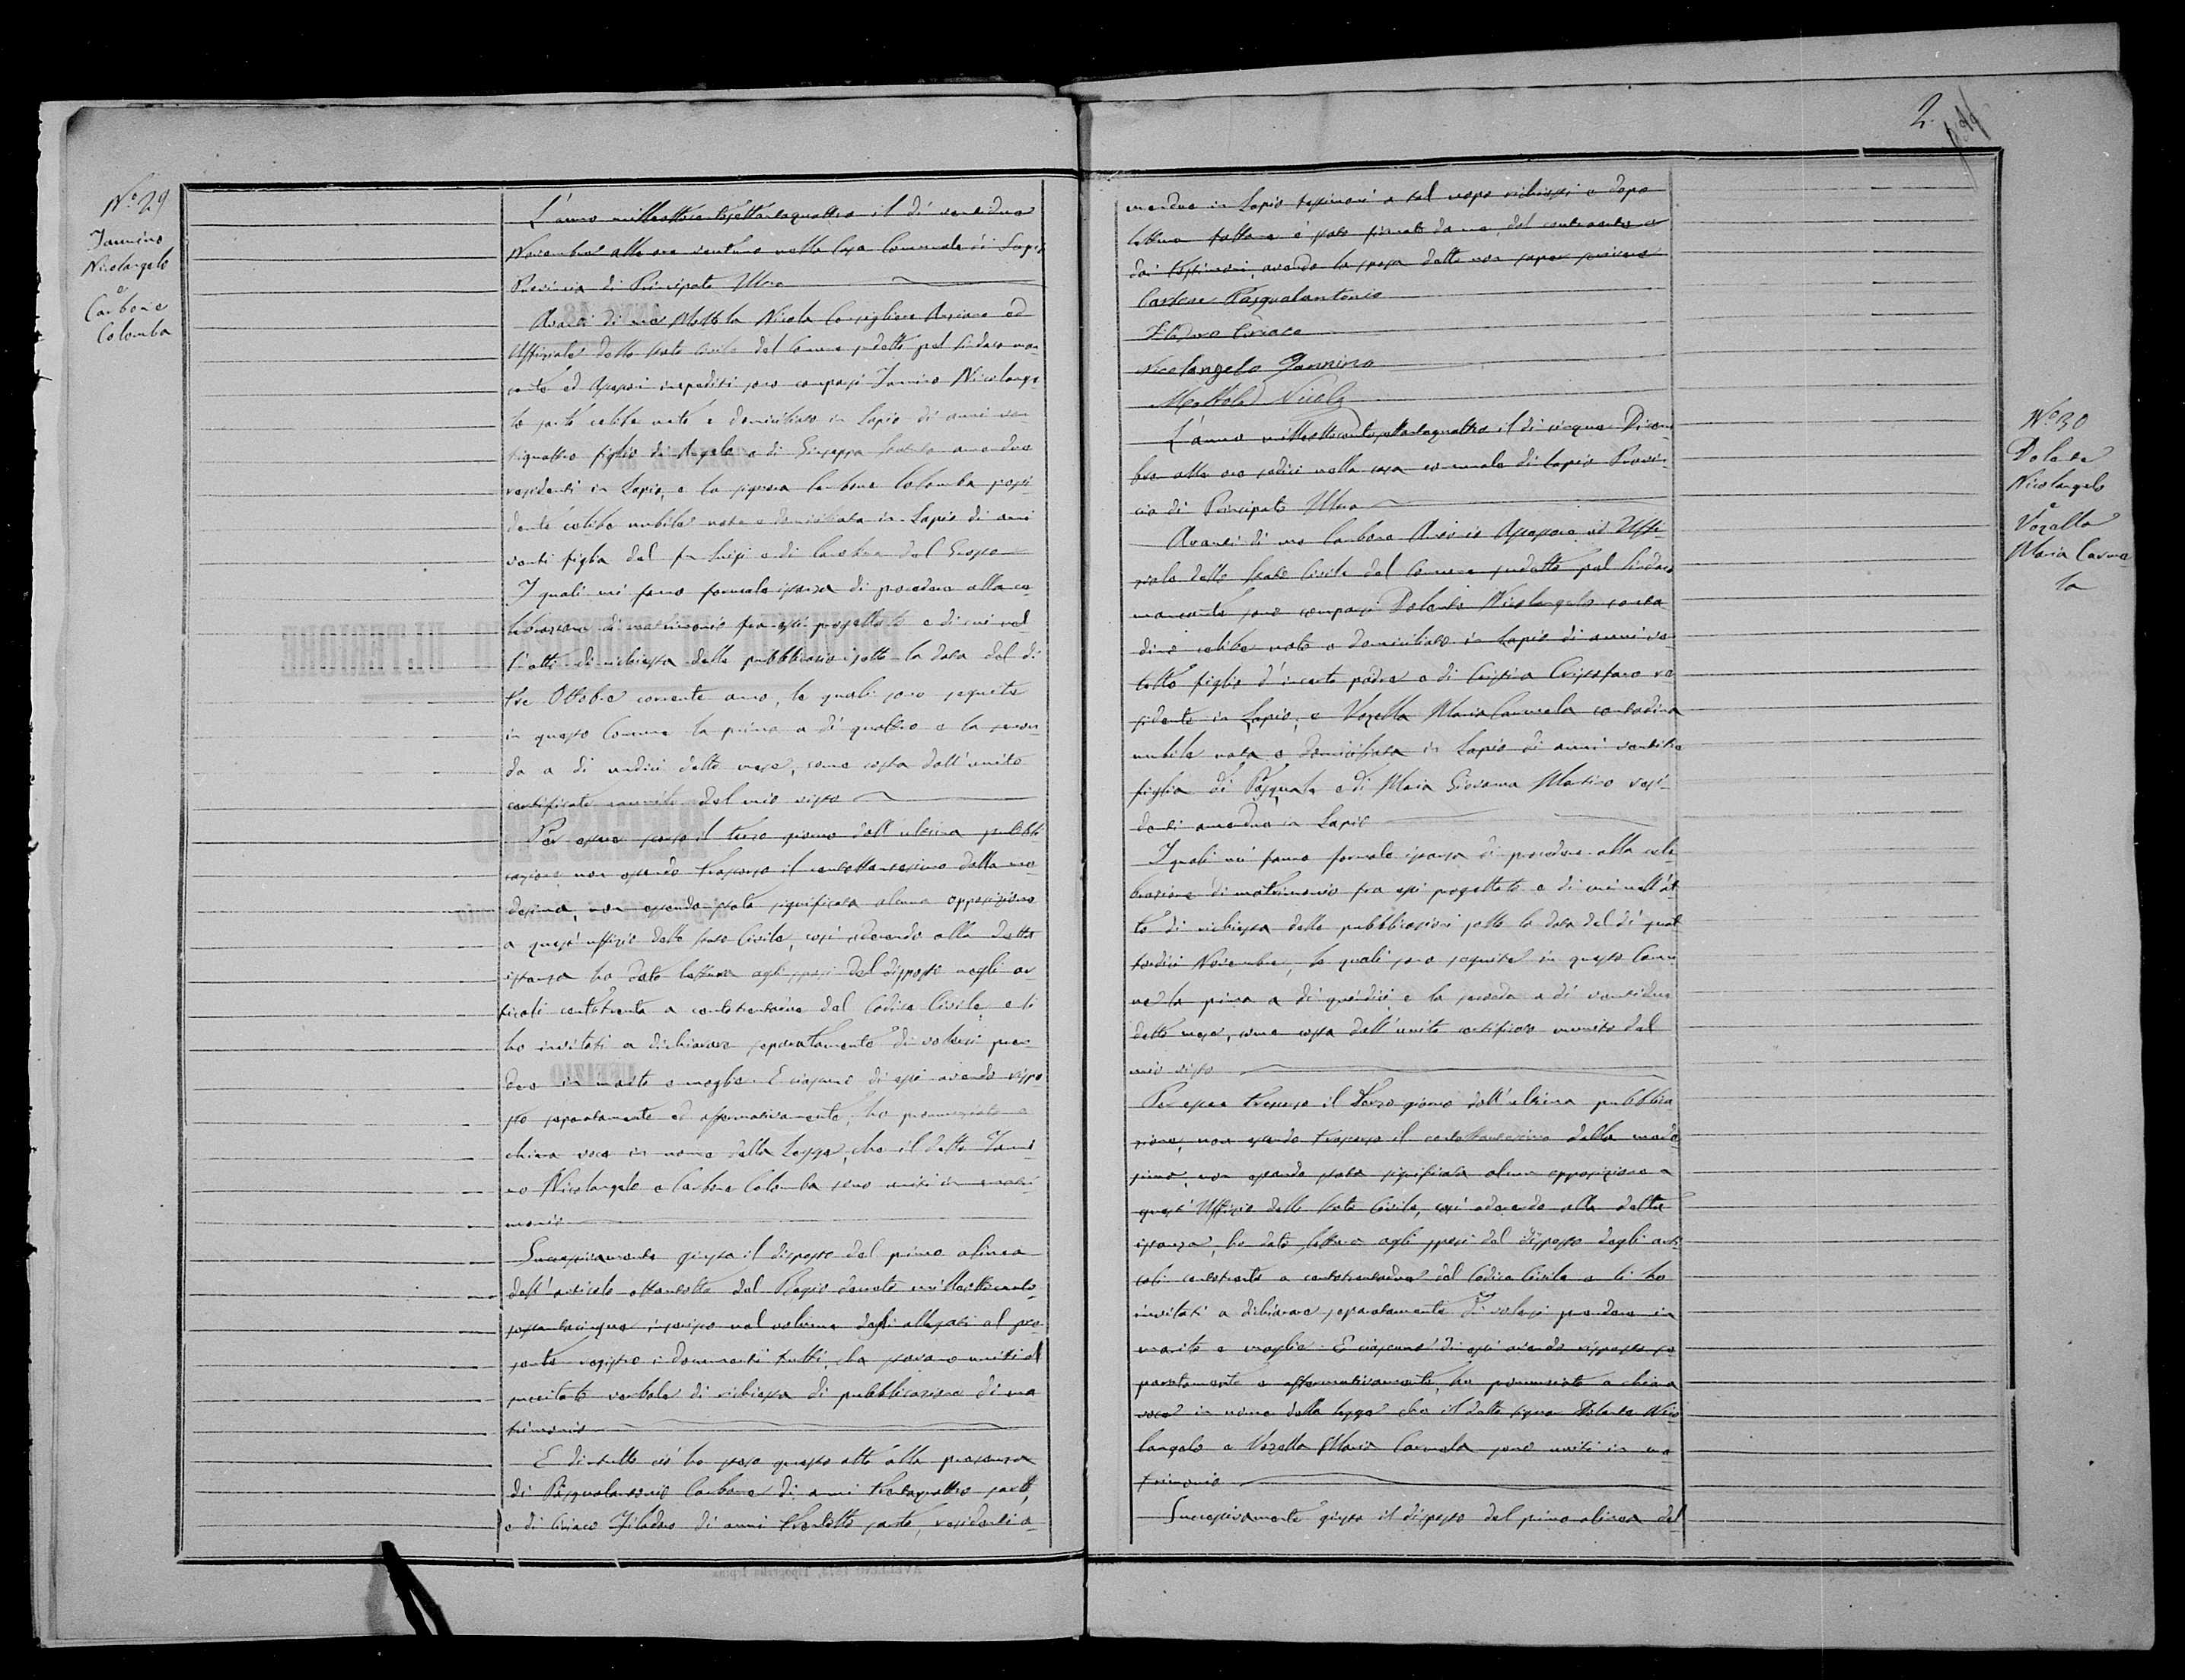 N.º 29
Iannino
Nicolangelo
e
Carbone
Colomba
L'anno milleottocentosettantaquattro il dì ventidue
Novembre alle ore ventuno nella Casa Comunale di Lapio
Provincia di Principato Ultra
Avanti di me Mottola Nicola Consigliere Anziano ed
Uffiziale dello Stato Civile del Comune sudetto pel Sindaco man
cante ed Assessori impediti sono comparsi Iannino Nicolange
lo sarto celibe nato e domiciliato in Lapio di anni ven
tiquattro figlio di Angelo e di Giuseppa amendue
residenti in Lapio, e la signora Carbone Colomba possi
dente nubile nata e domiciliata in Lapio di anni
venti figlia del fu Luigi e di del Grosso
I quali mi fanno formale istanza di procedere alla ce
lebrazione di matrimonio fra essi progettato e di cui nel
l'atto di richiesta delle pubblicazioni sotto la data del dì
tre Ottobre corrente anno, le quali sono seguite
in questo Comune la prima a dì quattro e la secon
da a dì undici detto mese, come costa dall'unito
certificato munito del mio visto
Per essere scorso il terzo giorno dall'ultima pubbli
cazione non essendo trascorso il centottantesimo dalla me
desima, non essendo stata significata alcuna opposizione
a quest'uffizio dello Stato Civile, così aderendo alla detta
istanza ho dato lettura agli sposi del disposto negli ar
ticoli centotrenta a centotrentadue del Codice Civile, e li
ho invitati a dichiarare separatamente di volersi pren
dere in marito e moglie. E ciascuno di essi avendo rispo
sto separatamente ed affermativamente, ho pronunziato a
chiara voce in nome della Legge, che il detto Ianni
no Nicolangelo e Carbone Colomba sono uniti in matri
monio
Successivamente giusta il disposto del primo alinea
dell'articolo ottantotto del Regio decreto milleottocento
sessantacinque inserisco nel volume degli allegati al pre
sente registro i documenti tutti, che stavano uniti al
succitato verbale di richiesta di pubblicazione di ma
trimonio
E di tutto ciò ho steso questo atto alla presenza
di Pasqualantonio Carbone di anni trentaquattro sarto,
e di Ciriaco Filadoro di anni trentotto sarto, residenti a
2
mendue in Lapio testimoni a tal uopo richiesti e dopo
lettura fattane è stato firmato da me, dal contraente e
dai testimoni, avendo la sposa detto non saper scrivere
Carbone Pasqualantonio
Filadoro Ciriaco
Nicolangelo Iannino
Mottola Nicola
N.º 30
Dolente
Nicolangelo
e
Vozella
Maria Carme
la
L'anno milleottocentosettantaquattro il dì cinque Dicem
bre alle ore sedici nella casa comunale di Lapio Provin
cia di Principato Ultra
Avanti di me Carbone Assessore ed Uffi
ziale dello Stato Civile del Comune sudetto pel Sindaco
mancante sono comparsi Dolente Nicolangelo conta
dino celibe nato e domiciliato in Lapio di anni ven
totto figlio d'incerto padre e di re
sidente in Lapio, e Vozella Maria Carmela contadina
nubile nata e domiciliata in Lapio di anni ventitre
figlia di Pasquale e di Maria Giovanna Martino resi
denti amendue in Lapio
I quali mi fanno formale istanza di procedere alla cele
brazione di matrimonio fra essi progettato e di cui nell'at
to di richiesta delle pubblicazioni sotto la data del dì quat
tordici Novembre, le quali sono seguite in questo Comu
ne la prima a dì quindici e la seconda a dì ventidue
detto mese, come costa dall'unito certificato munito del
mio visto
Per essere trascorso il terzo giorno dall'ultima pubblica
zione, non essendo trascorso il centottantesimo dalla mede
sima, non essendo stata significata alcuna opposizione a
quest'Uffizio dello Stato Civile, così aderendo alla detta
istanza, ho dato lettura agli sposi del disposto degli arti
coli centotrenta a centotrentadue del Codice Civile e li ho
invitati a dichiarare separatamente di volersi prendere in
marito e moglie. E ciascuno di essi avendo risposto se
paratamente e affermativamente, ho pronunziato a chiara
voce in nome della legge che il detto signor Dolente Nico
langelo e Vozella Maria Carmela sono uniti in ma
trimonio
Successivamente giusta il disposto del primo alinea del